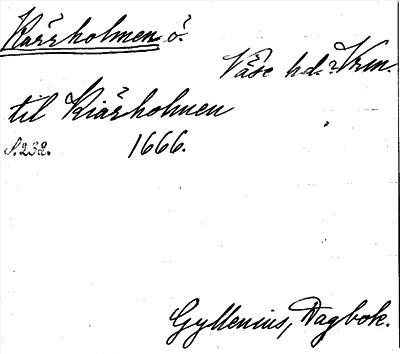 Kärrholmen ö.
Väse hd. Vrm.
til Kiärholmen
S. 232. 1666.
Gyllenius, Dagbok.